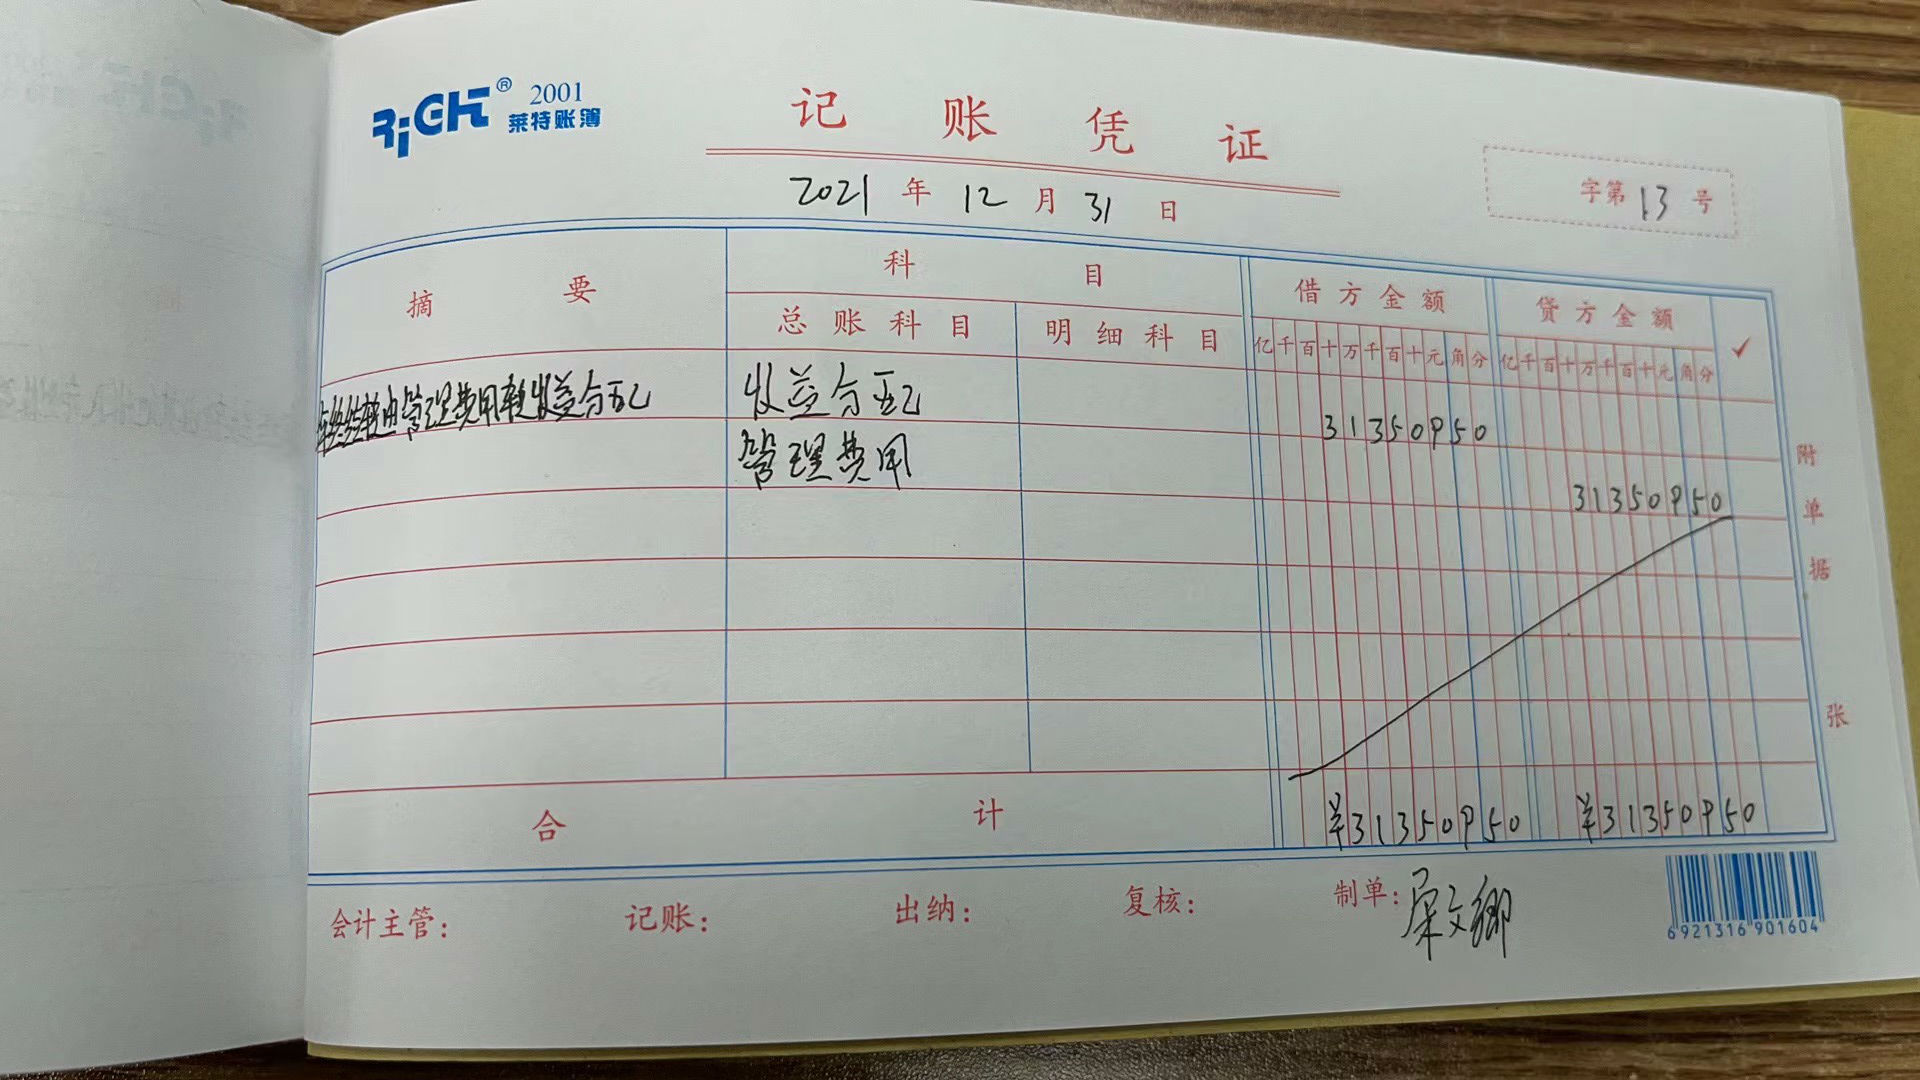 RiGHT® 2001
莱特账簿
记账凭证
2021年12月31日
字第13号
摘要
科目
借方金额
贷方金额
✓
总账科目
明细科目
亿千百十万千百十元角分
亿千百十万千百十元角分
年终结转由管理费用转收益分配
收益分配
31350950
管理费用
31350950
附单据
张
合计
¥31350950
¥31350950
会计主管:
记账:
出纳:
复核:
制单:
6921316901604